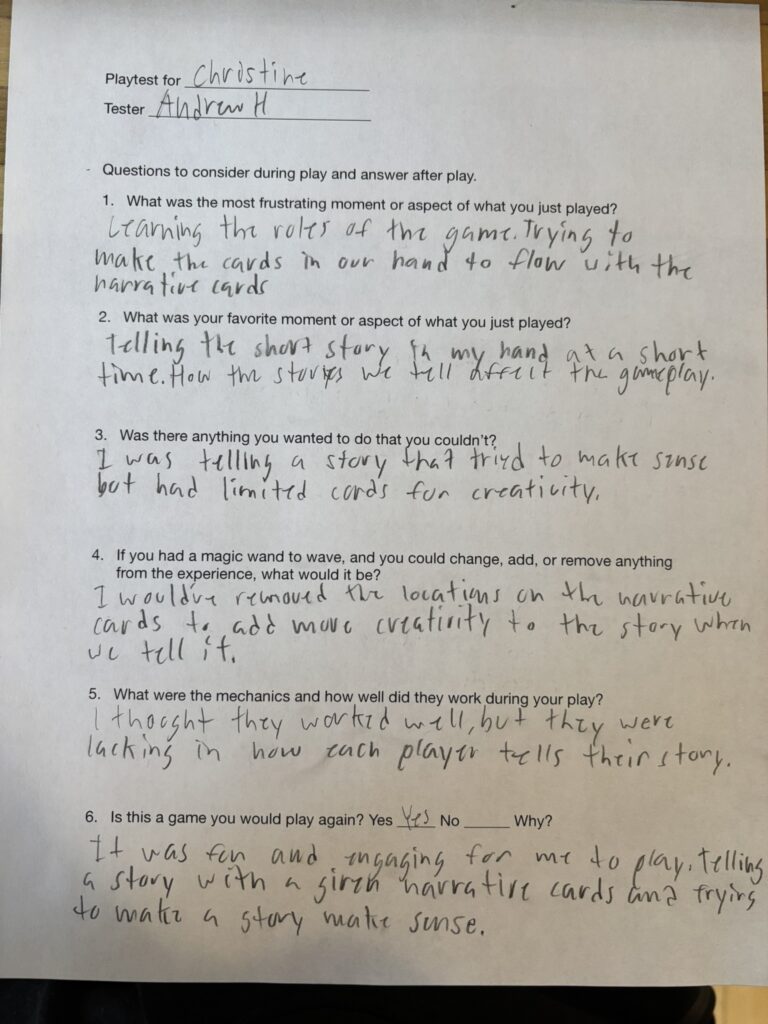 Playtest for Christine
Tester Andrew H
Questions to consider during play and answer after play.
1. What was the most frustrating moment or aspect of what you just played?
Learning the roles of the game. Trying to
make the cards in our hand to flow with the
narrative cards
2. What was your favorite moment or aspect of what you just played?
Telling the short story in my hand at a short
time. How the stories we tell affect the gameplay.
3. Was there anything you wanted to do that you couldn't?
I was telling a story that tried to make sense
but had limited cards for creativity.
4. If you had a magic wand to wave, and you could change, add, or remove anything
from the experience, what would it be?
I would've removed the locations on the narrative
cards to add more creativity to the story when
we tell it.
5. What were the mechanics and how well did they work during your play?
I thought they worked well, but they were
lacking in how each player tells their story.
6. Is this a game you would play again? Yes Yes No _____ Why?
It was fun and engaging for me to play. telling
a story with a given narrative cards and trying
to make a story make sense.